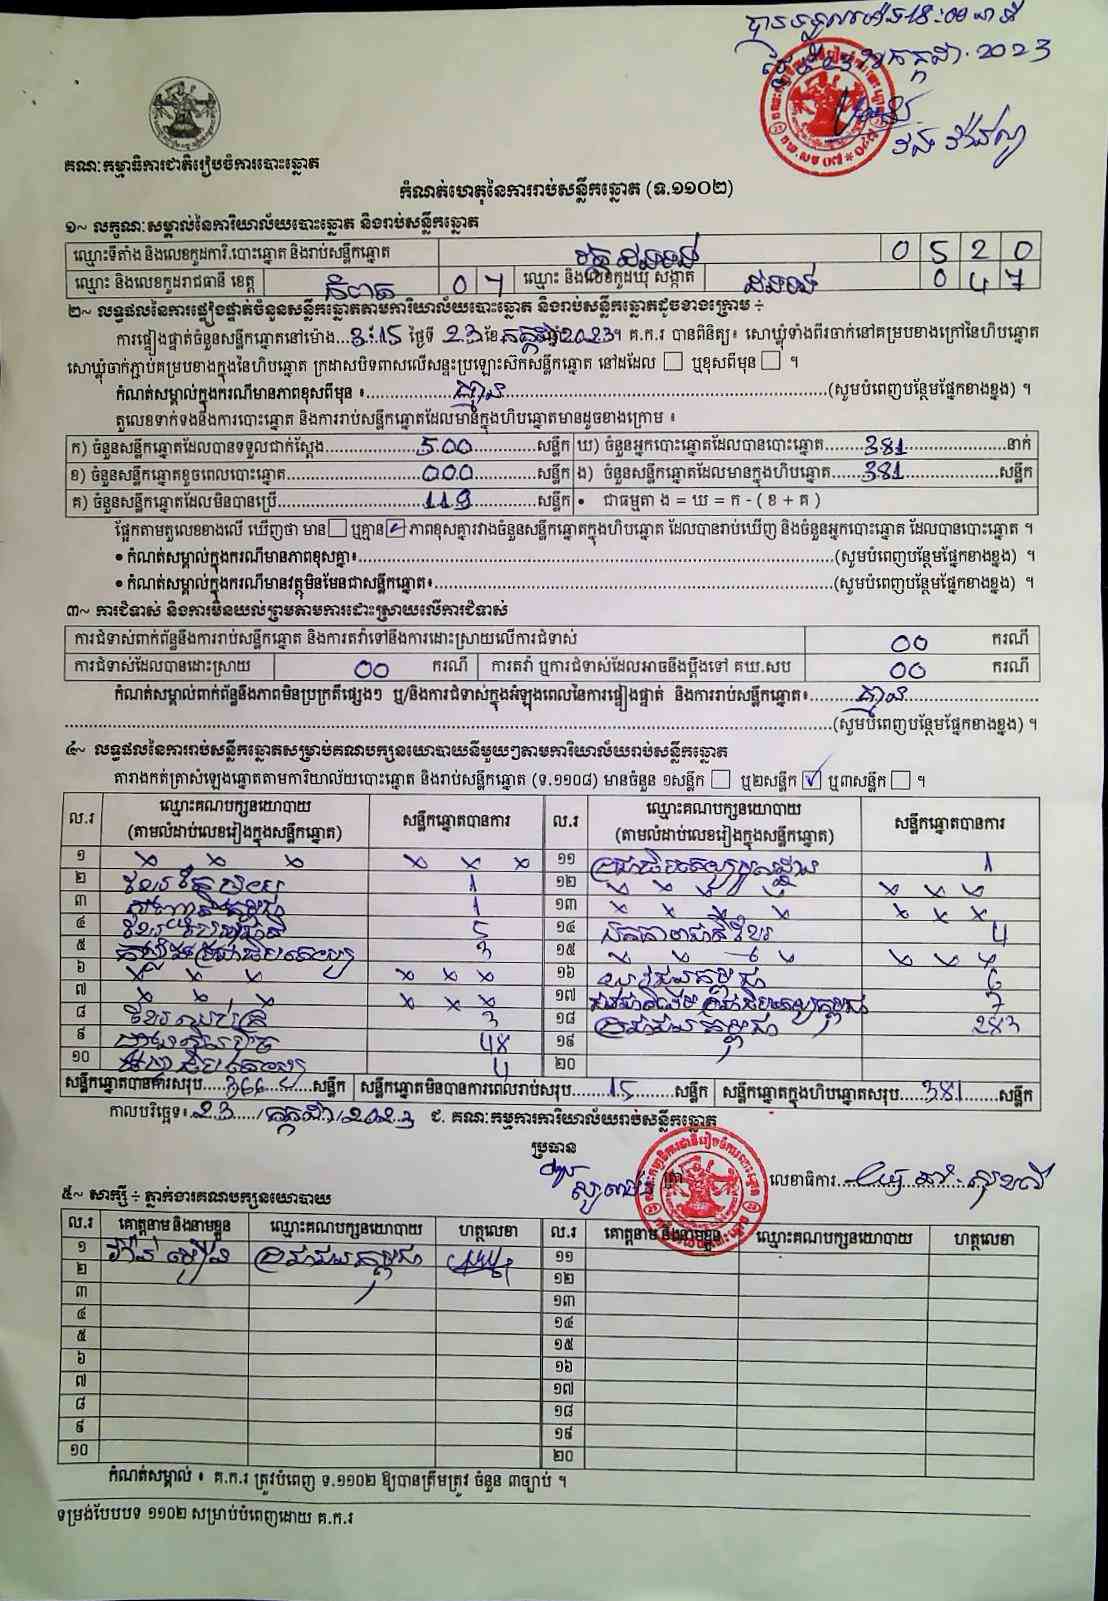 2023
គណៈកម្មាធិការជាតិរៀបចំការបោះឆ្នោត
កំណត់ហេតុនៃការរាប់សន្លឹកឆ្នោត (ទ.១១០២)
១~ លក្ខណៈសម្គាល់នៃការិយាល័យបោះឆ្នោត និងរាប់សន្លឹកឆ្នោត
ឈ្មោះទីតាំង និងលេខកូដការិ.បោះឆ្នោត និងរាប់សន្លឹកឆ្នោត 0 5 2 0
ឈ្មោះ និងលេខកូដរាជធានី ខេត្ត កំពត 0 7 ឈ្មោះ និងលេខកូដឃុំ សង្កាត់ 0 4 7
២~ លទ្ធផលនៃការផ្ទៀងផ្ទាត់ចំនួនសន្លឹកឆ្នោតតាមការិយាល័យបោះឆ្នោត និងរាប់សន្លឹកឆ្នោតដូចខាងក្រោម ÷
ការផ្ទៀងផ្ទាត់ចំនួនសន្លឹកឆ្នោតនៅម៉ោង...3:15 ថ្ងៃទី 23 ខែ កក្កដា ឆ្នាំ2023។ គ.ក.រ បានពិនិត្យ៖ សោឃ្លុំទាំងពីរចាក់នៅគម្របខាងក្រៅនៃហិបឆ្នោត
សោឃ្លុំចាក់ភ្ជាប់គម្របខាងក្នុងនៃហិបឆ្នោត ក្រដាសបិទពាសលើសន្ទះប្រឡោះស៊កសន្លឹកឆ្នោត នៅដដែល ☐ ឬខុសពីមុន ☐ ។
កំណត់សម្គាល់ក្នុងករណីមានភាពខុសពីមុន ៖ គ្មាន (សូមបំពេញបន្ថែមផ្នែកខាងខ្នង) ។
តួលេខទាក់ទងនឹងការបោះឆ្នោត និងការរាប់សន្លឹកឆ្នោតដែលមានក្នុងហិបឆ្នោតមានដូចខាងក្រោម ៖
ក) ចំនួនសន្លឹកឆ្នោតដែលបានទទួលជាក់ស្តែង 500 សន្លឹក ឃ) ចំនួនអ្នកបោះឆ្នោតដែលបានបោះឆ្នោត 381 នាក់
ខ) ចំនួនសន្លឹកឆ្នោតខូចពេលបោះឆ្នោត 000 សន្លឹក ង) ចំនួនសន្លឹកឆ្នោតដែលមានក្នុងហិបឆ្នោត 381 សន្លឹក
គ) ចំនួនសន្លឹកឆ្នោតដែលមិនបានប្រើ 119 សន្លឹក • ជាធម្មតា ង = ឃ = ក - ( ខ + គ )
ផ្អែកតាមតួលេខខាងលើ ឃើញថា មាន ☐ ឬគ្មាន ☑ ភាពខុសគ្នារវាងចំនួនសន្លឹកឆ្នោតក្នុងហិបឆ្នោត ដែលបានរាប់ឃើញ និងចំនួនអ្នកបោះឆ្នោត ដែលបានបោះឆ្នោត ។
• កំណត់សម្គាល់ក្នុងករណីមានភាពខុសគ្នា៖ (សូមបំពេញបន្ថែមផ្នែកខាងខ្នង) ។
• កំណត់សម្គាល់ក្នុងករណីមានវត្ថុមិនមែនជាសន្លឹកឆ្នោត៖ (សូមបំពេញបន្ថែមផ្នែកខាងខ្នង) ។
៣~ ការជំទាស់ និងការមិនយល់ព្រមតាមការដោះស្រាយលើការជំទាស់
ការជំទាស់ពាក់ព័ន្ធនឹងការរាប់សន្លឹកឆ្នោត និងការតវ៉ាទៅនឹងការដោះស្រាយលើការជំទាស់ 00 ករណី
ការជំទាស់ដែលបានដោះស្រាយ 00 ករណី ការតវ៉ា ឬការជំទាស់ដែលអាចនឹងប្តឹងទៅ គឃ.សប 00 ករណី
កំណត់សម្គាល់ពាក់ព័ន្ធនឹងភាពមិនប្រក្រតីផ្សេងៗ ឬ/និងការជំទាស់ក្នុងអំឡុងពេលនៃការផ្ទៀងផ្ទាត់ និងការរាប់សន្លឹកឆ្នោត៖ គ្មាន
(សូមបំពេញបន្ថែមផ្នែកខាងខ្នង) ។
៤~ លទ្ធផលនៃការរាប់សន្លឹកឆ្នោតសម្រាប់គណបក្សនយោបាយនីមួយៗតាមការិយាល័យរាប់សន្លឹកឆ្នោត
តារាងកត់ត្រាសំឡេងឆ្នោតតាមការិយាល័យបោះឆ្នោត និងរាប់សន្លឹកឆ្នោត (ទ.១១០៨) មានចំនួន ១សន្លឹក ☐ ឬ២សន្លឹក ☑ ឬ៣សន្លឹក ☐ ។
ល.រ ឈ្មោះគណបក្សនយោបាយ (តាមលំដាប់លេខរៀងក្នុងសន្លឹកឆ្នោត) សន្លឹកឆ្នោតបានការ ល.រ ឈ្មោះគណបក្សនយោបាយ (តាមលំដាប់លេខរៀងក្នុងសន្លឹកឆ្នោត) សន្លឹកឆ្នោតបានការ
១ x x x x x x ១១ 1
២ 1 ១២ x x x x x x x
៣ 1 ១៣ x x x x x x x
៤ 5 ១៤ 4
៥ 3 ១៥ x x x
៦ x x x x x x ១៦ 6
៧ x x x x x x ១៧ 7
៨ 3 ១៨ ប្រជាជនកម្ពុជា 283
៩ 48 ១៩
១០ 4 ២០
សន្លឹកឆ្នោតបានការសរុប 366 សន្លឹក សន្លឹកឆ្នោតមិនបានការពេលរាប់សរុប 15 សន្លឹក សន្លឹកឆ្នោតក្នុងហិបឆ្នោតសរុប 381 សន្លឹក
កាលបរិច្ឆេទ៖ 23 / កក្កដា / 2023 ជ. គណៈកម្មការការិយាល័យរាប់សន្លឹកឆ្នោត
ប្រធាន
លេខាធិការ
៥~ សាក្សី ÷ ភ្នាក់ងារគណបក្សនយោបាយ
ល.រ គោត្តនាម និងនាមខ្លួន ឈ្មោះគណបក្សនយោបាយ ហត្ថលេខា ល.រ គោត្តនាម និងនាមខ្លួន ឈ្មោះគណបក្សនយោបាយ ហត្ថលេខា
១ ប្រជាជនកម្ពុជា ១១
២ ១២
៣ ១៣
៤ ១៤
៥ ១៥
៦ ១៦
៧ ១៧
៨ ១៨
៩ ១៩
១០ ២០
កំណត់សម្គាល់ ៖ គ.ក.រ ត្រូវបំពេញ ទ.១១០២ ឱ្យបានត្រឹមត្រូវ ចំនួន ៣ច្បាប់ ។
ទម្រង់បែបបទ ១១០២ សម្រាប់បំពេញដោយ គ.ក.រ